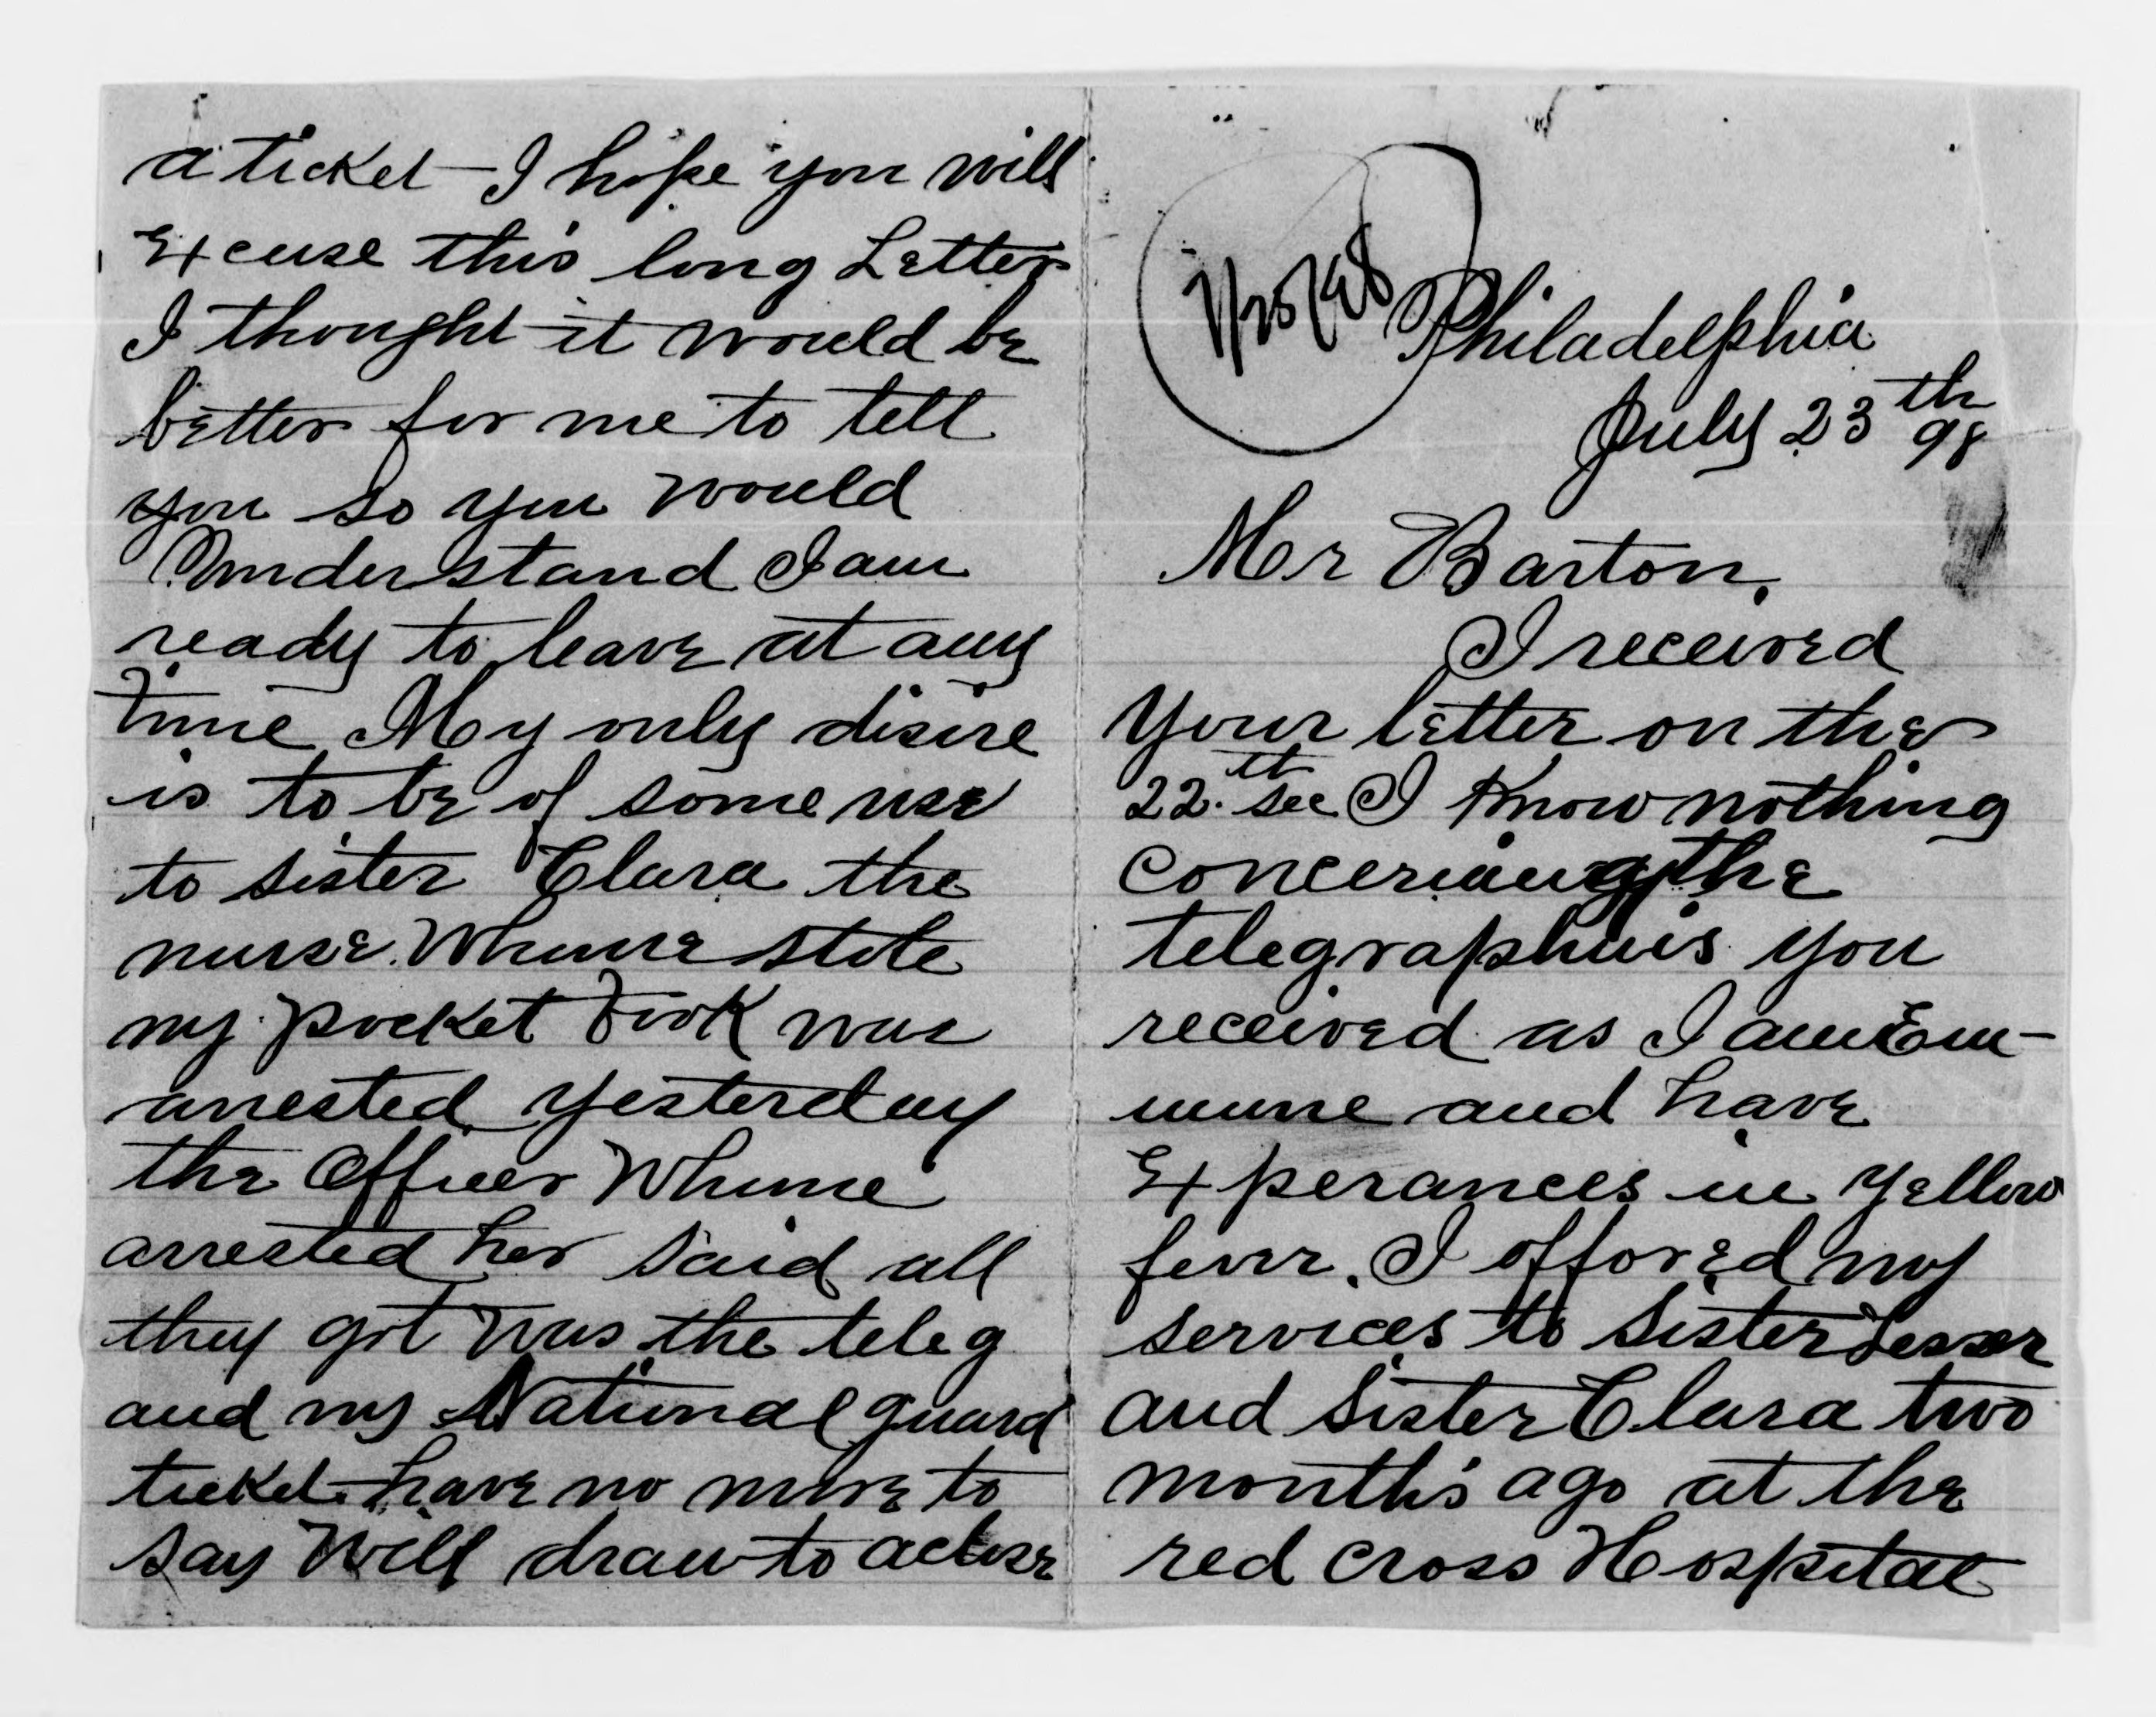 7/25/98
Philadelphia
July 23th 98
Mr Barton,
I received
Your letter on the
22.th sec I Know nothing
Conceriaing the
telegraphuis you
received as I am Em-
mune and have
Experances in Yellow
fever. I offored my
services to Sister Lesser
and Sister Clara two
months ago at the
red cross Hospital
a ticket - I hope you will
Excuse this long Letter
I thought it would be
better for me to tell
you so you would
Understand I am
ready to leave at any
time My only disire
is to be of some use
to sister Clara the
nurse. Whume stole
my pocket book was
arrested yesterday
the Officer Whume
arrested her said all
they got was the teleg
and my National guard
ticket have no more to
say Will draw to aclose